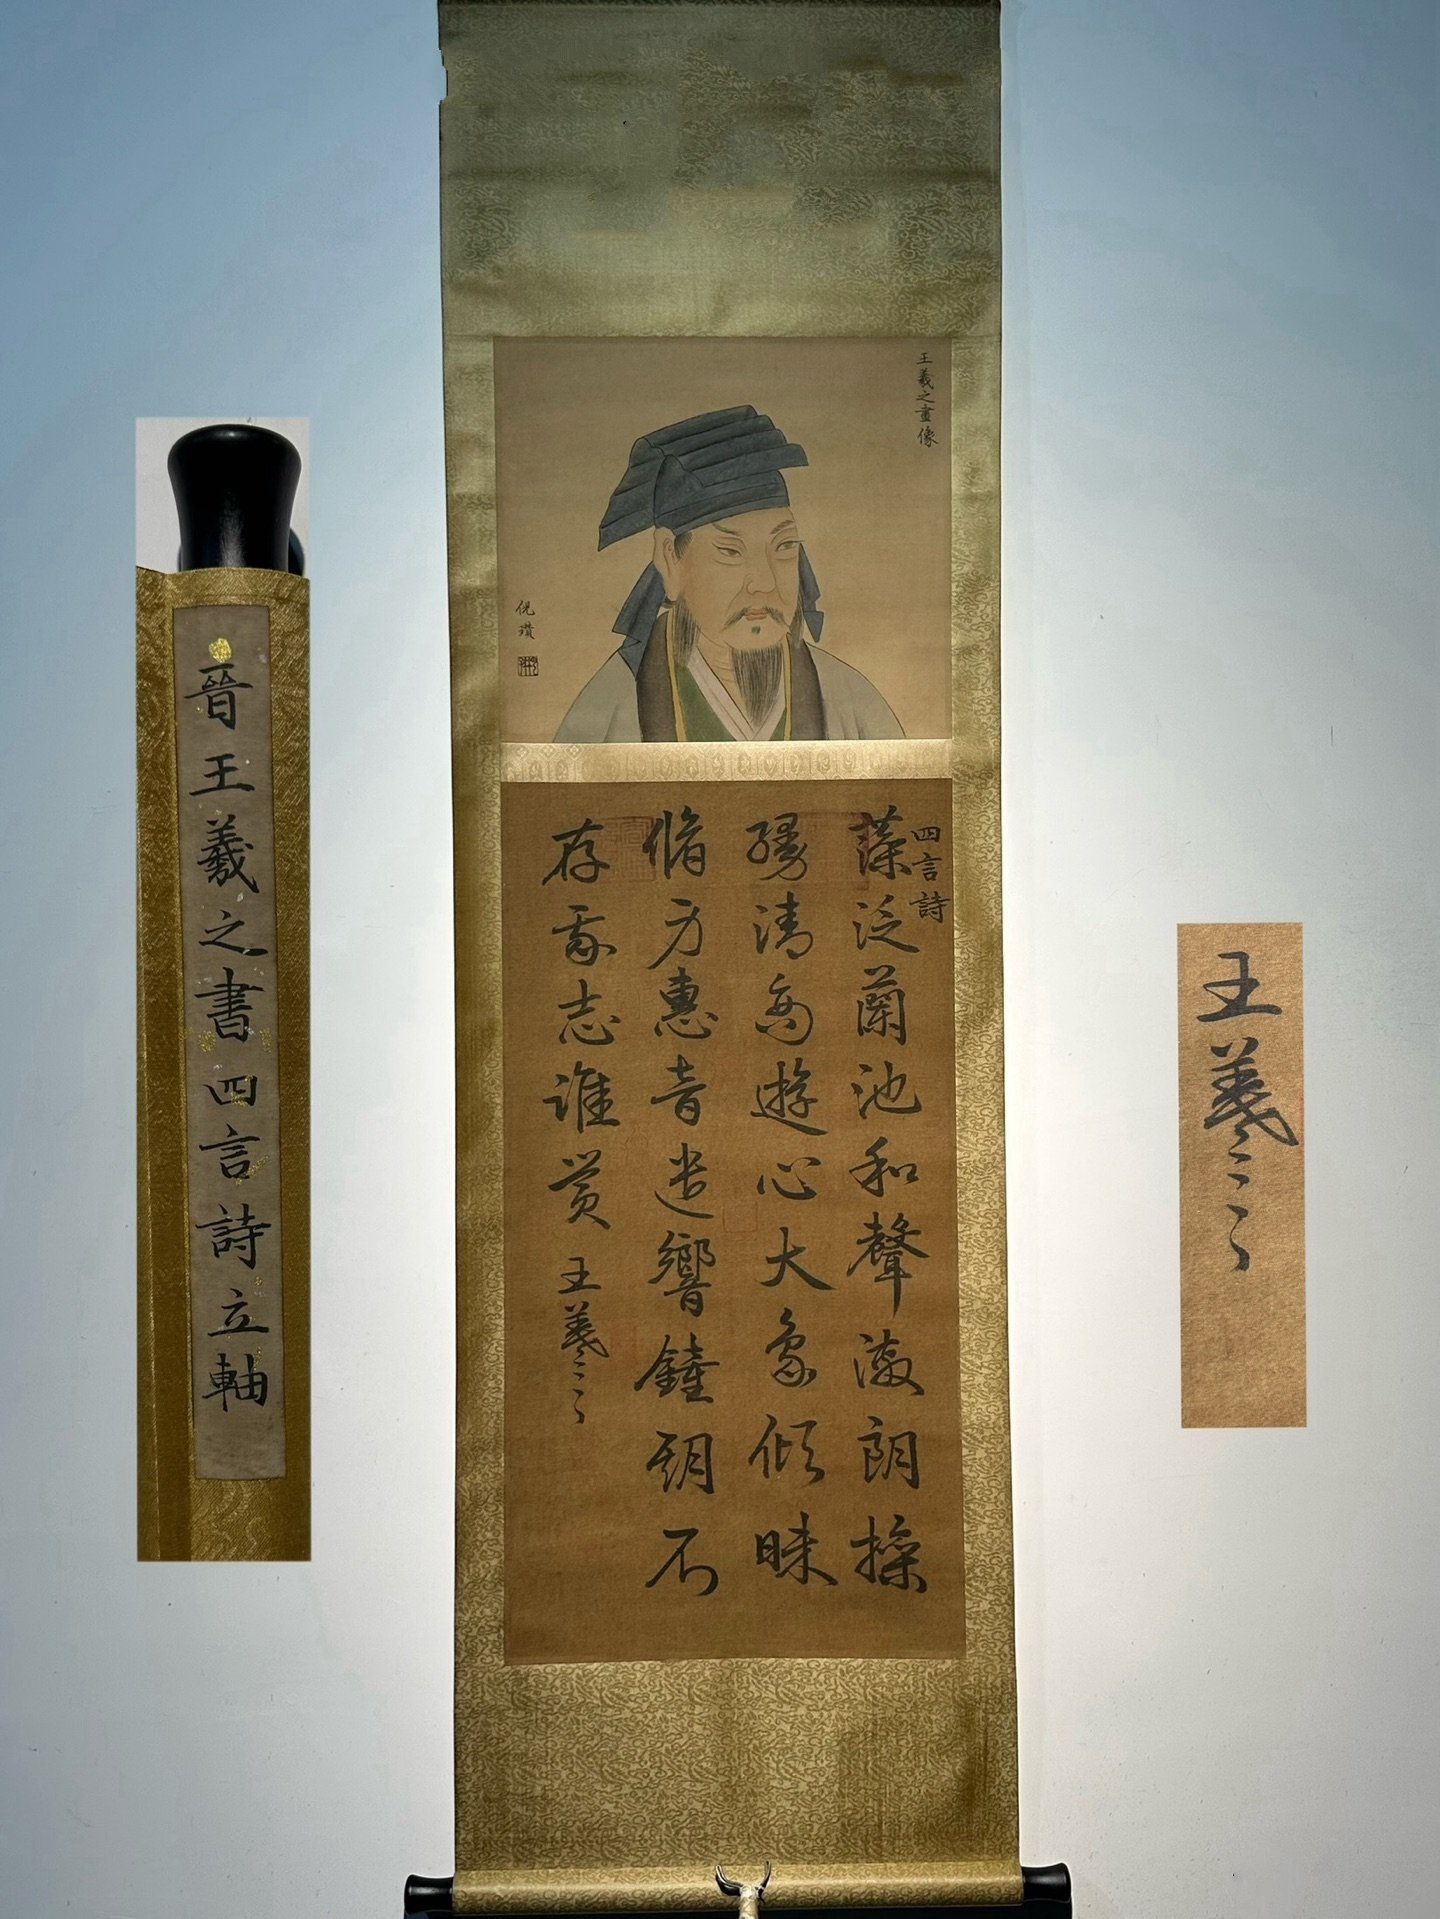 王羲之畫像
倪瓚
四言詩
藻泛蘭池和聲激朗操
縵清商遊心大象傾昧
脩身惠音遺響鐘期不
存我志誰賞
王羲之
晉王羲之書四言詩立軸
王羲之